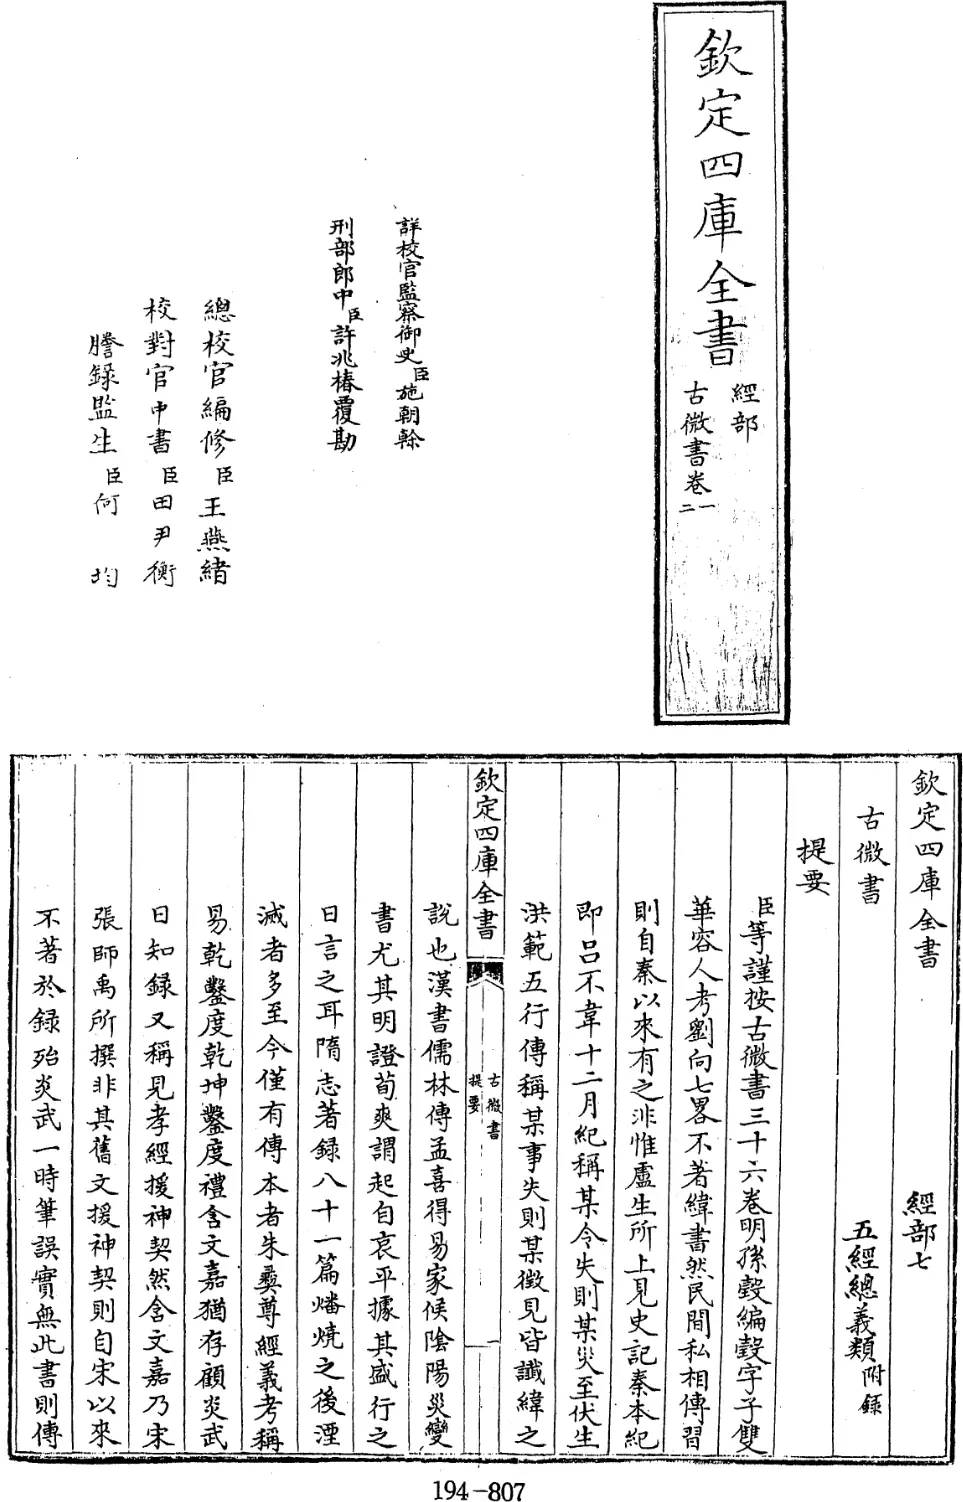 欽定四庫全書
經部
古微書卷一
二
詳校官監察御史臣施朝幹
刑部郎中臣許兆椿覆勘
總校官編修臣王燕緒
校對官中書臣田尹衡
謄録監生臣何均
欽定四庫全書 經部七
古微書 五經總義類附録
提要
臣等謹按古微書三十六卷明孫瑴編瑴字子雙
華容人考劉向七畧不著緯書然民間私相傳習
則自秦以來有之非惟盧生所上見史記秦本紀
即呂不韋十二月紀稱某令失則某災至伏生
洪範五行傳稱某事失則某徴見皆讖緯之
欽定四庫全書
古微書
提要
一
說也漢書儒林傳孟喜得易家候陰陽災變
書尤其明證荀爽謂起自哀平據其盛行之
日言之耳隋志著録八十一篇燔燒之後湮
滅者多至今僅有傳本者朱彝尊經義考稱
易乾鑿度乾坤鑿度禮含文嘉猶存顧炎武
日知録又稱見孝經援神契然含文嘉乃宋
張師禹所撰非其舊文援神契則自宋以來
不著於録殆炎武一時筆誤實無此書則傳
194-807